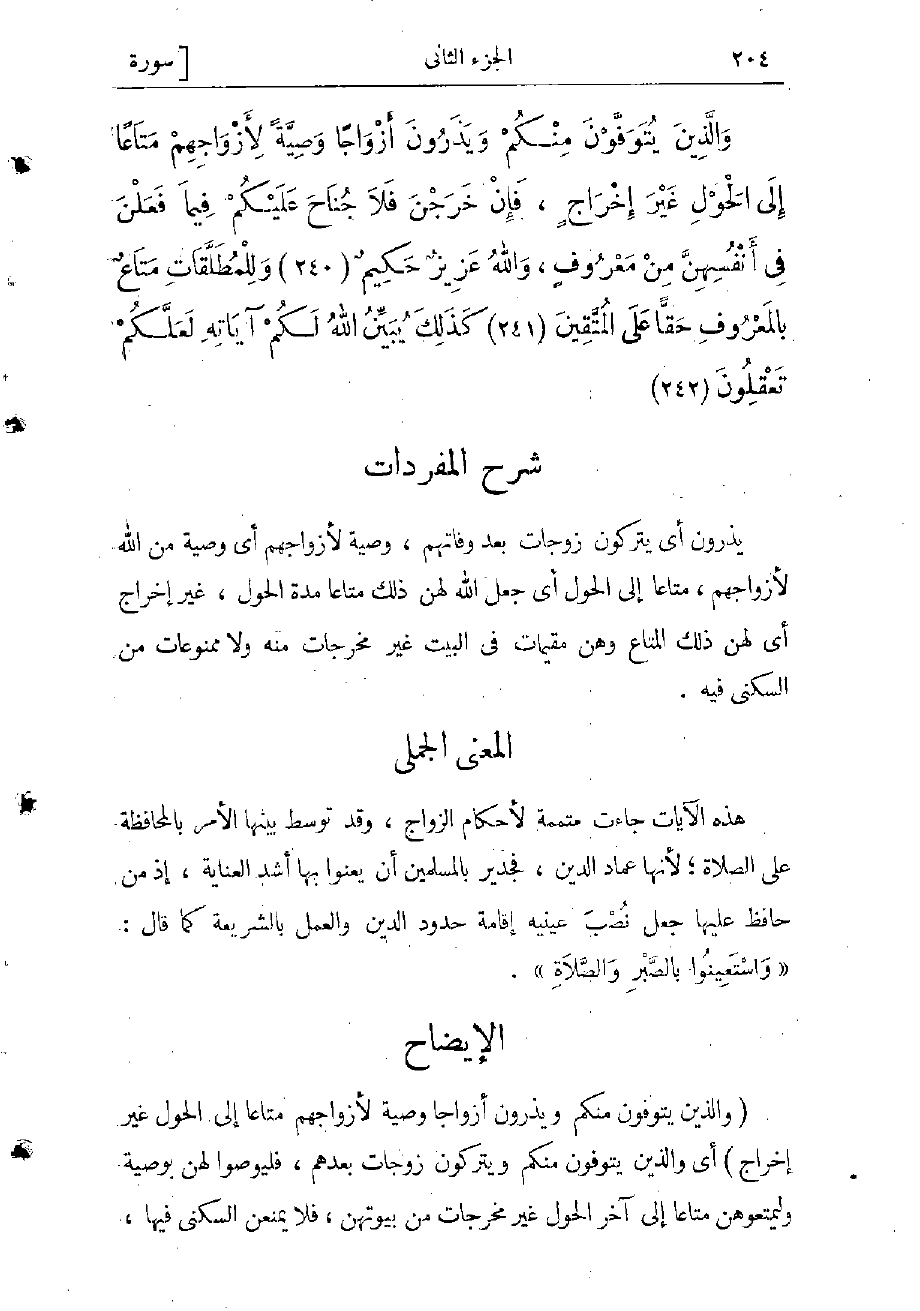 ٢٠٤ الجزء الثانى [ سورة
وَالَّذِينَ يُتَوَفَّوْنَ مِنْكُمْ وَيَذَرُونَ أَزْوَاجًا وَصِيَّةً لِأَزْوَاجِهِمْ مَتَاعًا
إِلَى الْحَوْلِ غَيْرَ إِخْرَاجٍ ، فَإِنْ خَرَجْنَ فَلَا جُنَاحَ عَلَيْكُمْ فِيمَا فَعَلْنَ
فِى أَنْفُسِهِنَّ مِنْ مَعْرُوفٍ ، وَاللهُ عَزِيزٌ حَكِيمٌ (٢٤٠) وَلِلْمُطَلَّقَاتِ مَتَاعٌ
بِالْمَعْرُوفِ حَقًّا عَلَى الْمُتَّقِينَ (٢٤١) كَذَلِكَ يُبَيِّنُ اللهُ لَكُمْ آيَاتِهِ لَعَلَّكُمْ
تَعْقِلُونَ (٢٤٢)
شرح المفردات
يذرون أى يتركون زوجات بعد وفاتهم ، وصية لأزواجهم أى وصية من الله
لأزواجهم ، متاعا إلى الحول أى جعل الله لهن ذلك متاعا مدة الحول ، غير إخراج
أى لهن ذلك المتاع وهن مقيمات فى البيت غير مخرجات منه ولا ممنوعات من
السكنى فيه .
المعنى الجملى
هذه الآيات جاءت متممة لأحكام الزواج ، وقد توسط بينها الأمر بالمحافظة
على الصلاة ؛ لأنها عماد الدين ، فجدير بالمسلمين أن يعنوا بها أشد العناية ، إذ من
حافظ عليها جعل نُصْبَ عينيه إقامة حدود الدين والعمل بالشريعة كما قال :
« وَاسْتَعِينُوا بِالصَّبْرِ وَالصَّلَاةِ » .
الإيضاح
( والذين يتوفون منكم ويذرون أزواجا وصية لأزواجهم متاعا إلى الحول غير
إخراج ) أى والذين يتوفون منكم ويتركون زوجات بعدهم ، فليوصوا لهن بوصية
وليمتعوهن متاعا إلى آخر الحول غير مخرجات من بيوتهن ، فلا يمنعن السكنى فيها ،